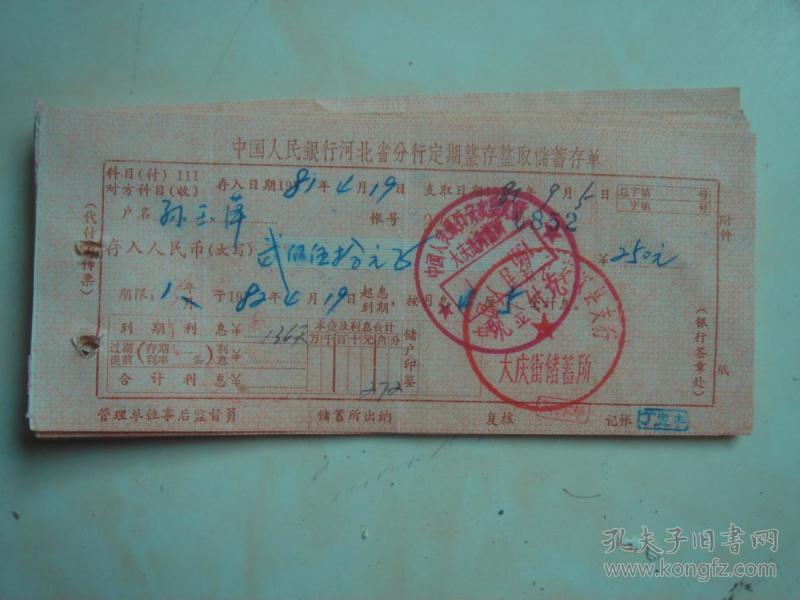 中国人民銀行河北省分行定期整存整取儲蓄存单
科目(付) 111
对方科目(收)
存入日期1981年4月19日 支取日期19 年9月5日
总字第 号
字第 号
户名 孙玉萍 帐号 6852
存入人民币(大写) 弍佰伍拾元 ¥250元
期限:1年 于1982年4月19日起息到期,按月息4厘5 计息.
到期利息¥
过期提前(存期利率 %)利息¥
合计利息¥
本金及利息合计
万千百十元角分
272
储户印鉴
(代付出传票)
附件
纸
(银行签章处)
管理单位事后监督員 储蓄所出纳 复核 记帐
大庆街储蓄所
现金付讫
大庆街储蓄所
支行
孔夫子旧书网
www.kongfz.com